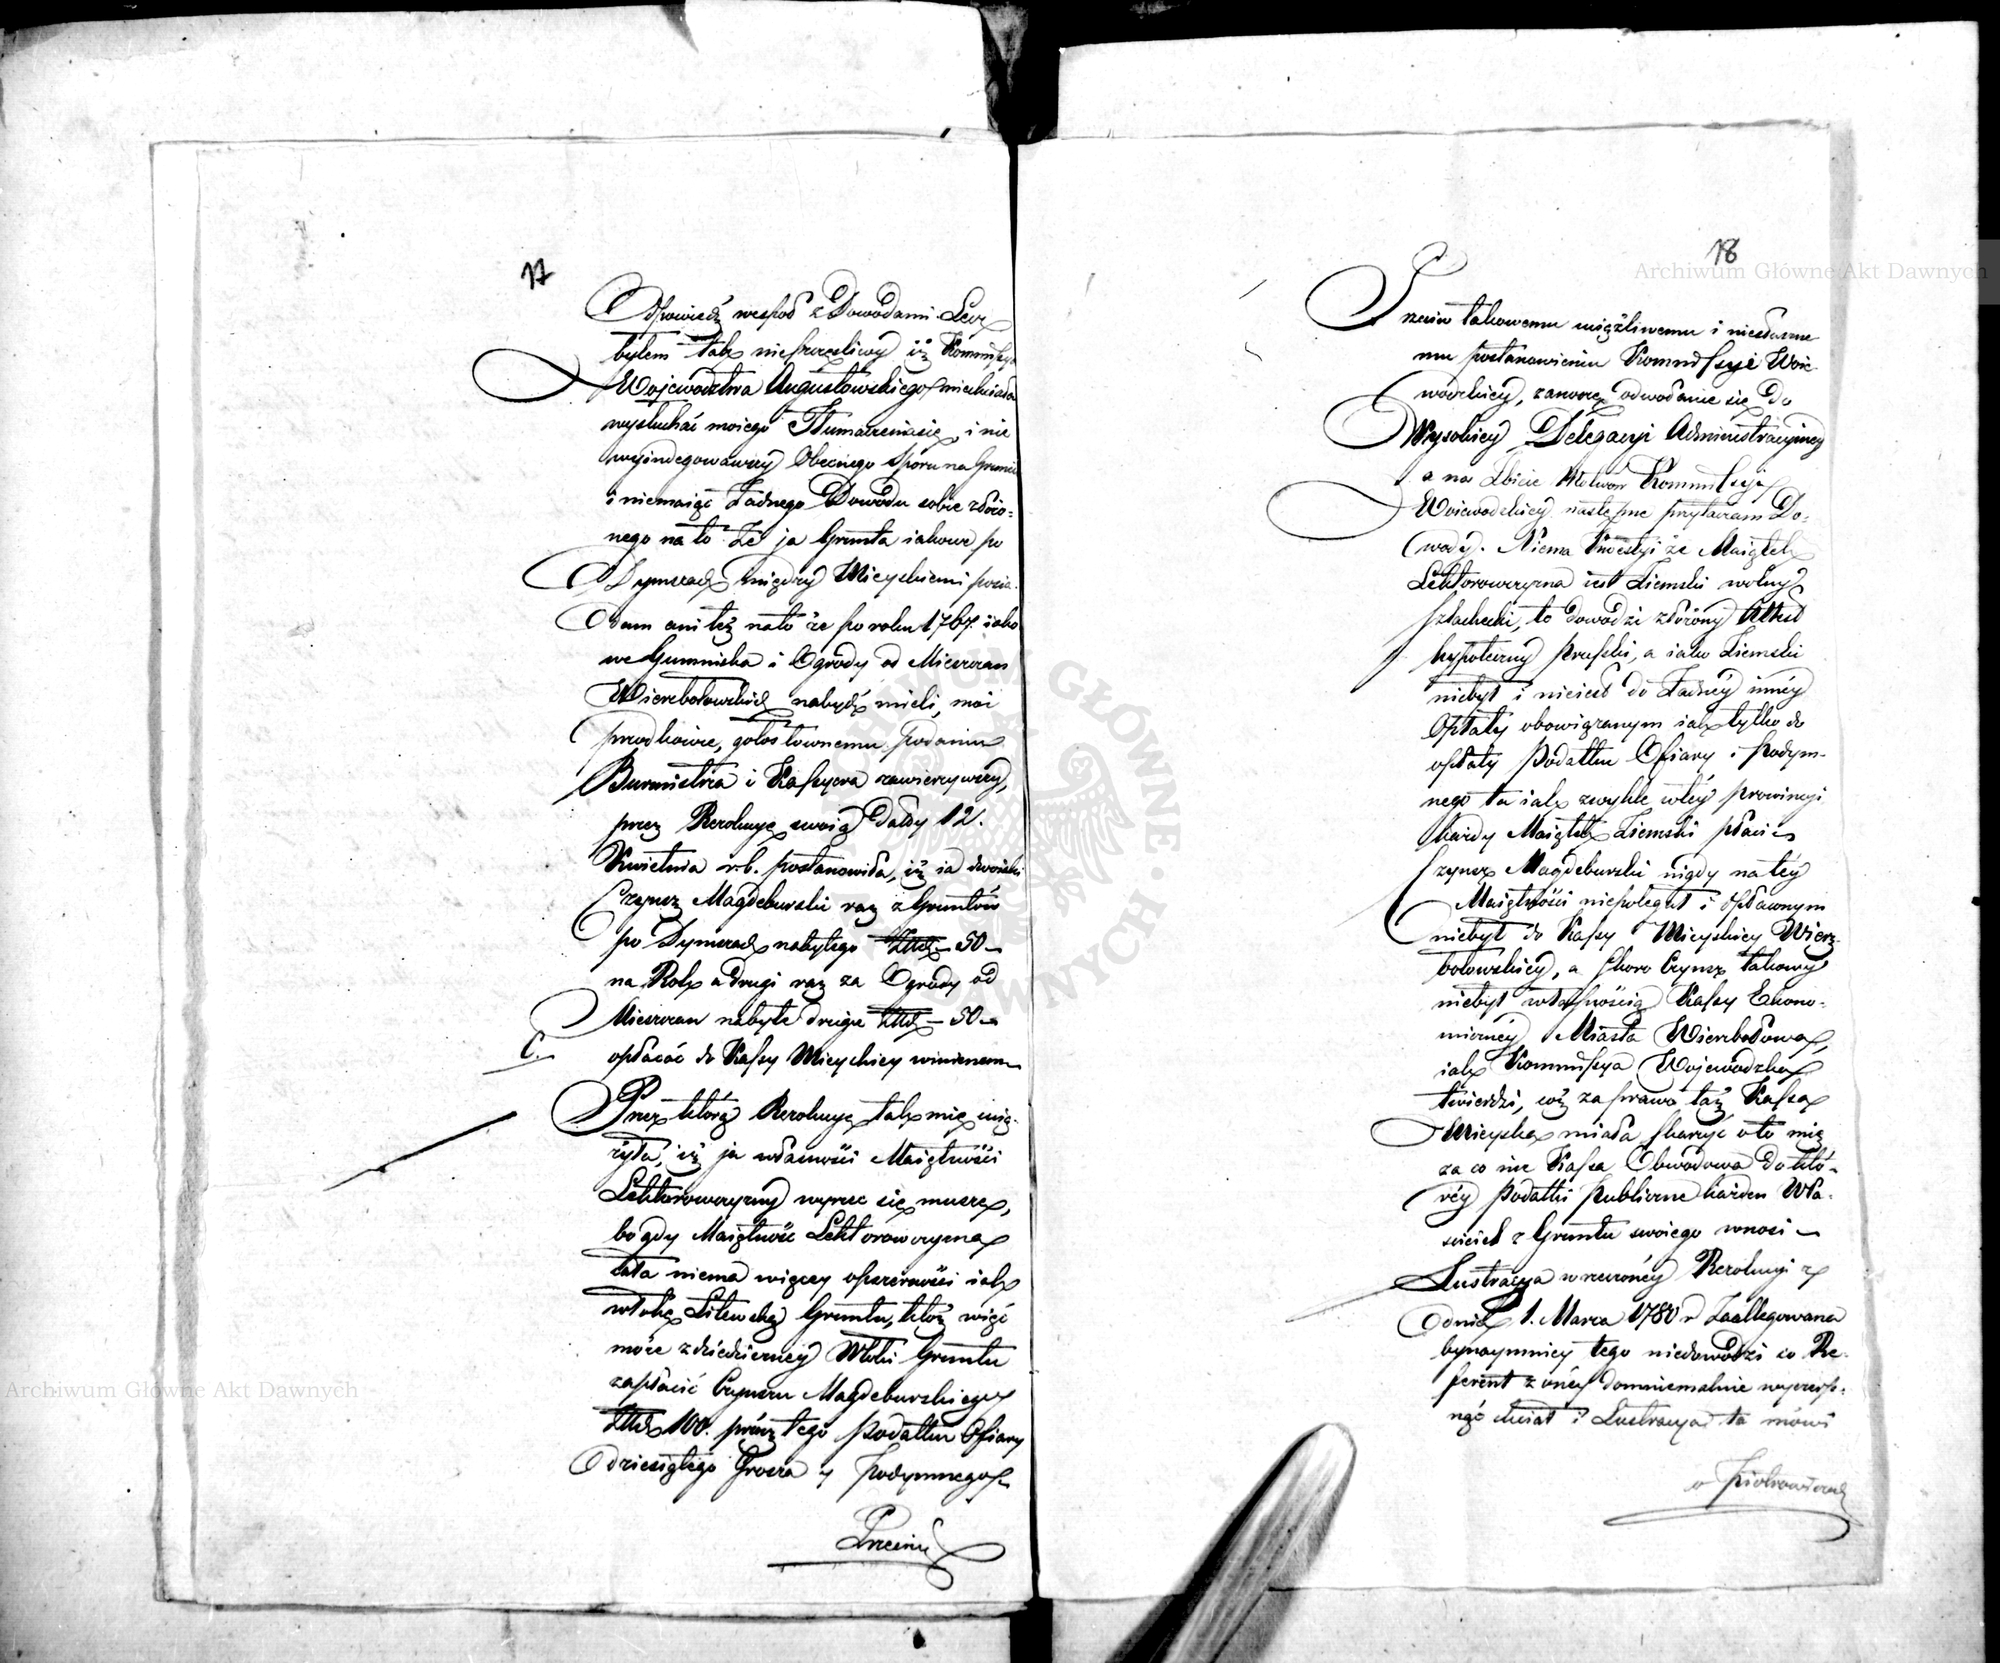 17
Odpowiedź wespoł z Dowodami. Lecz
byłem tak nieszczęśliwy iż Kommissya
Wojewodztwa Augustowskiego niechciała
wysłuchać moiego Tłumaczeniasię, i nie
obecnego sporu na Gruncie
i niemaiąc żadnego Dowodu sobie złożo=
nego na to że ja Grunta iakowe po
Dymszach między Mieyskiemi posia-
dam ani też nato że po roku 1767. iako
we Gumniska i Ogrody od Mieszczan
Wierzbołowskich nabydź mieli, moi
przodkowie, gołosłownemu podaniu
Burmistrza i Kassyera zawierzywszy,
przez Rezolucyę swoią Datty 12.
Kwietnia r. b. postanowiła, iż ia dwoiaki
Czynsz Magdeburski raz z Gruntów
po Dymszach nabytego 50
na Rok a drugi raz za Ogrody od
Mieszczan nabyte drugie 50
C.
opłacać do Kassy Mieyskiey winienem
Przez którą Rezolucyę tak mię ucią-
żyła, iż ja własności Maiętności
Lektorowczyzny wyrzec się muszę,
bo gdy Maiętność Lektorowczyzna
cała niema więcey obszerności iak
włokę Litewską Gruntu, któż więc
może z dziedziczney Włoki Gruntu
zapłacić Czynszu Magdeburskiego
100. prócz tego Podatku Ofiary
dziesiątego Grosza y Podymnego
Przeciw
18
Przeciw takowemu uciążliwemu i niesłuszne
mu postanowieniu Kommissyi Woie
wodzkiey, zanoszę odwołanie się do
Wysokiey Delegacyi Administracyiney
a na zbicie Kommissyi
Woiewodzkiey następne przytaczam Do-
wody. Niema kwestyi że Maiątek
Lektorowczyzna iest Ziemski wolny
szlachecki, to dowodzi złożony
hypoteczny Pruski, a iako Ziemski
niebył i nieiest do żadney inney
Opłaty obowiązanym iak tylko do
opłaty Podatku Ofiary i Podym-
nego ta iak zwykle w tey prowincyi
każdy Maiątek Ziemski płaci
Czynsz Magdeburski nigdy na tey
Maiętności niepolegał i opłacanym
niebył do Kassy Mieyskiey Wierz-
bołowskiey, a skoro Czynsz takowy
niebył własnością Kassy Ekono-
miczney Miasta Wierzbołowa,
iak Kommissya Wojewodzka
twierdzi, coż za prawo taż Kassa
Mieyska miała skarżyć oto mię
za co nie Kassa Obwodowa do któ-
rey Podatki Publiczne każden Wła-
ściciel z Gruntu swoiego wnosi
Lustracya w rzeczoney Rezolucyi z
dnia 1. Marca 1780 r. Zaallegowana
bynaymniey tego niedowodzi co Re-
ferent z oney domniemalnie wyczerp-
nąć chciał i Lustracya ta mówi
o Piotrowiczach
Archiwum Główne Akt Dawnych
Archiwum Główne Akt Dawnych